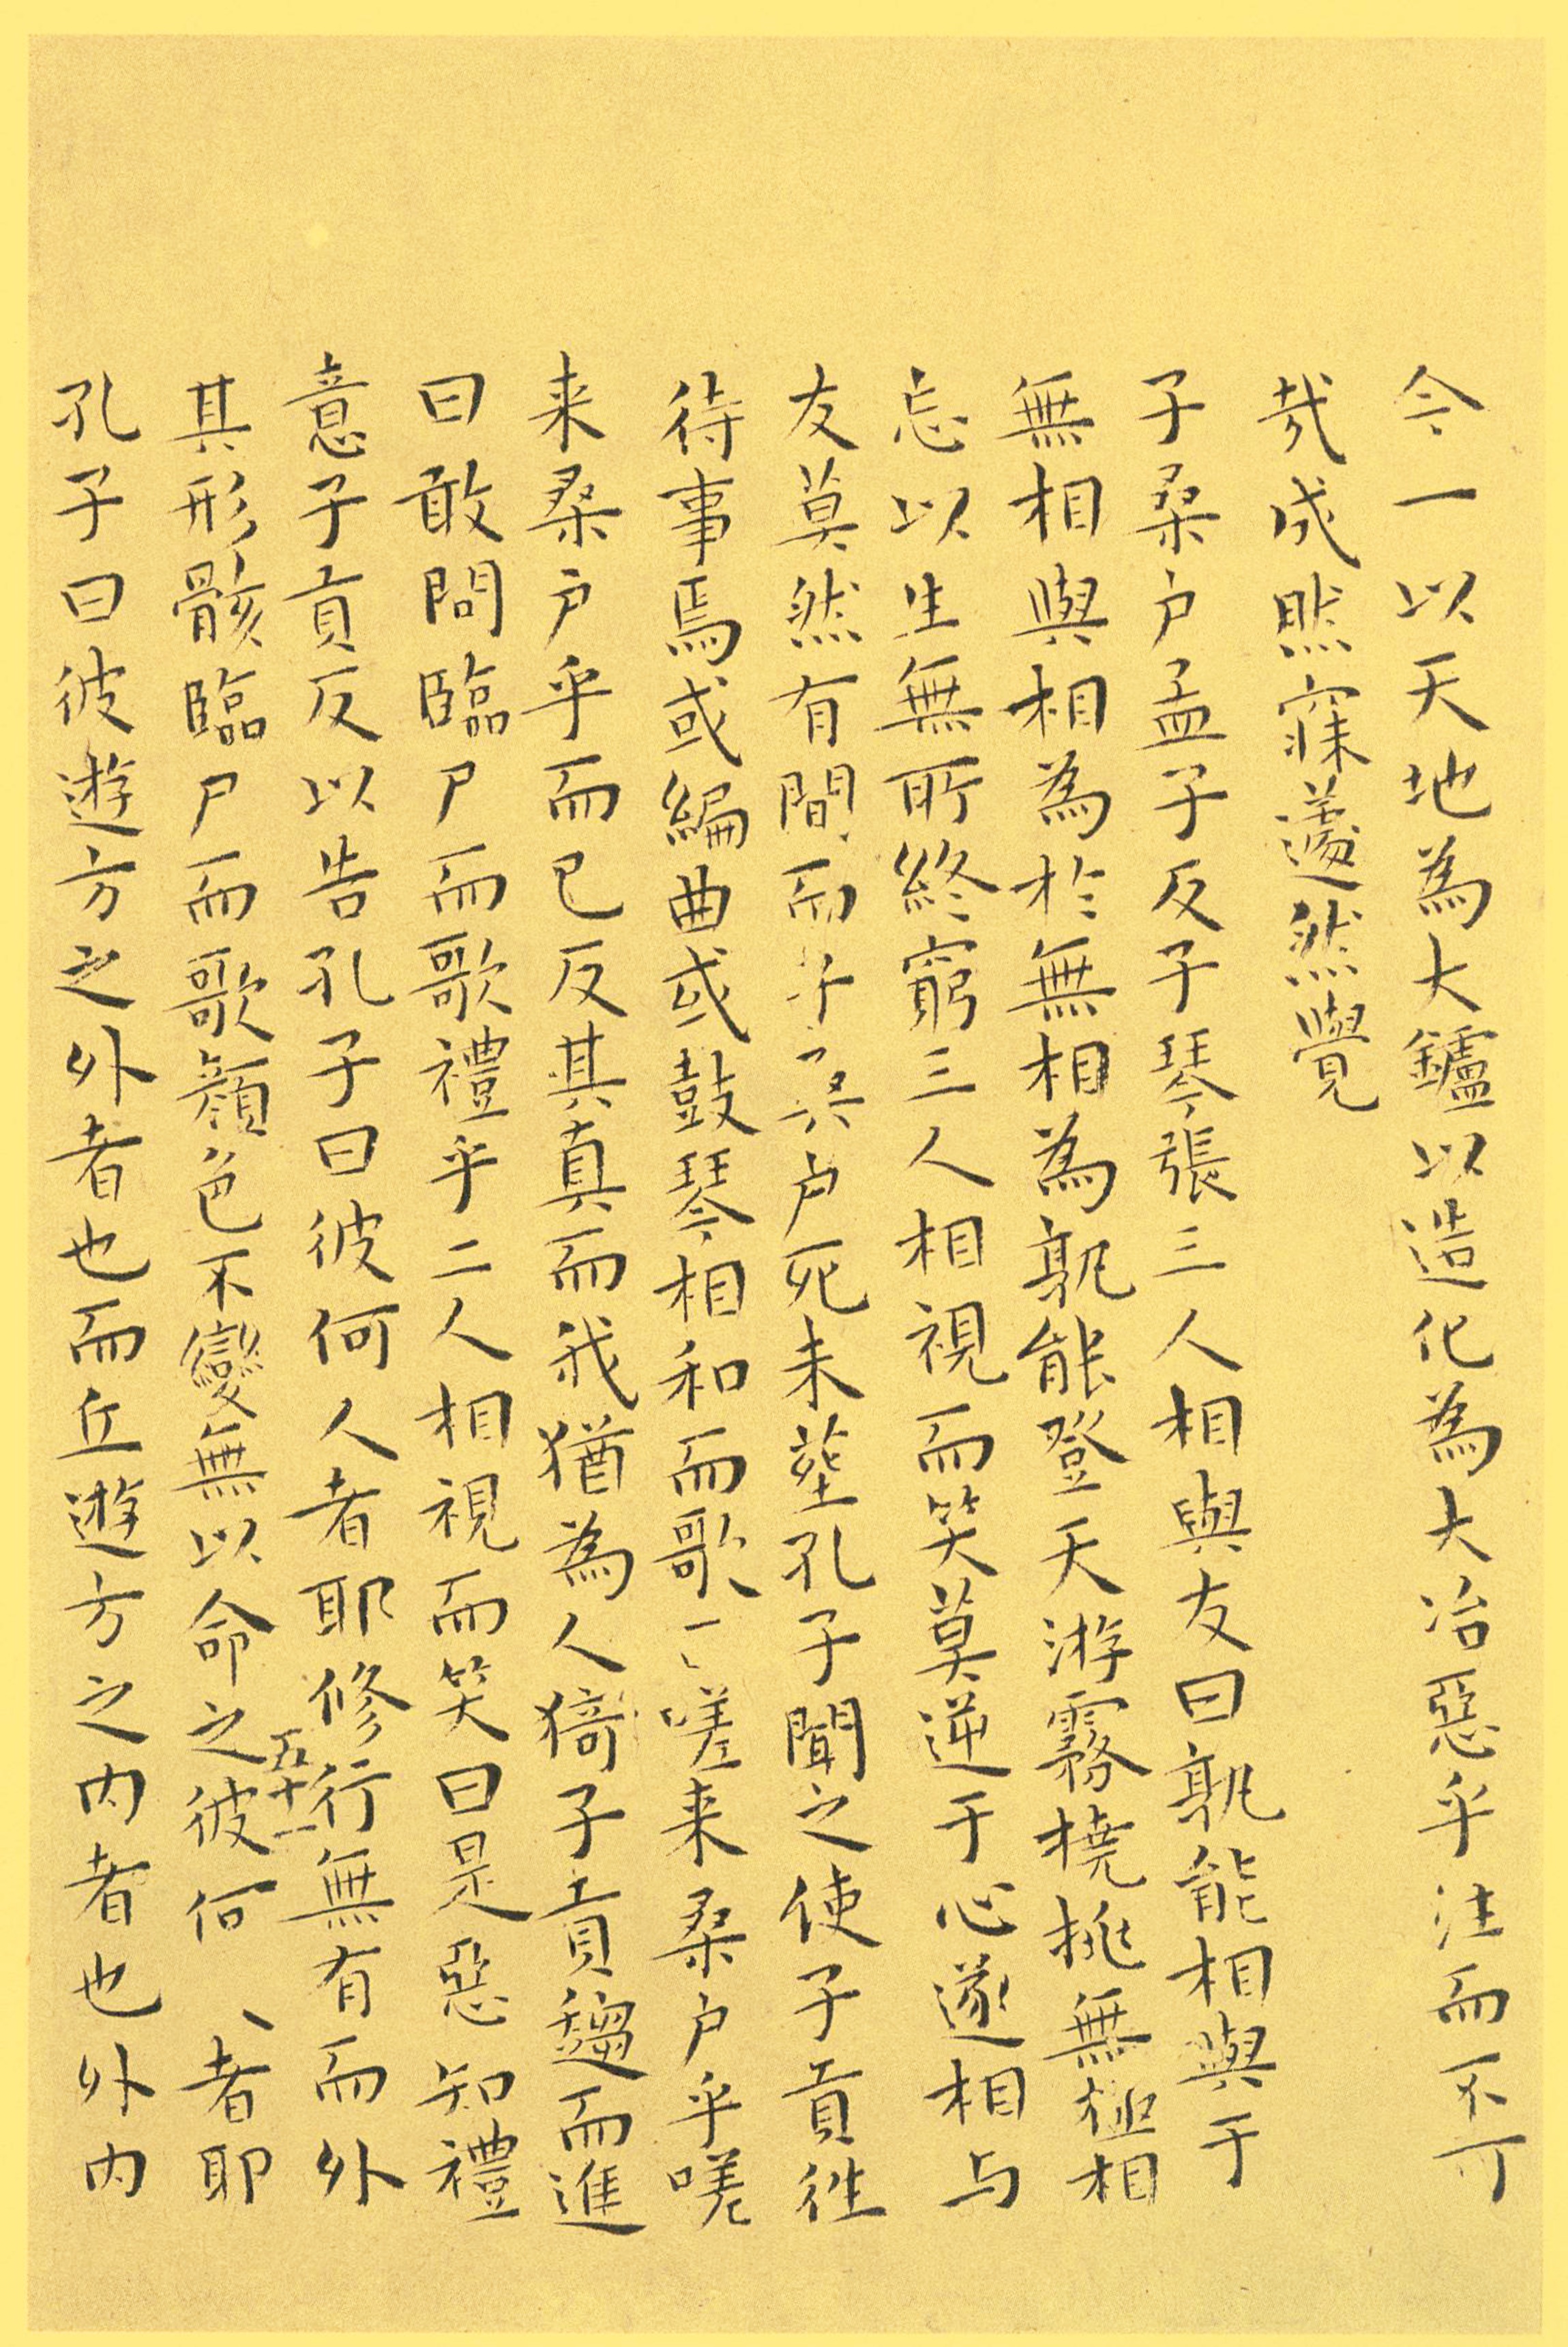 今一以天地為大鑪以造化為大冶惡乎注而不可
哉成然寐蘧然覺
子桑户孟子反子琴張三人相與友曰孰能相與于
無相與相為於無相為孰能登天游霧橈挑無極相
忘以生無所終窮三人相視而笑莫逆于心遂相与
友莫然有間而子桒户死未塟孔子聞之使子貢往
待事焉或編曲或鼓琴相和而歌曰嗟来桑户乎嗟
来桑户乎而已反其真而我猶為人猗子貢趨而進
曰敢問臨尸而歌禮乎二人相視而笑曰是惡知禮
意子貢反以告孔子曰彼何人者耶修行無有而外
其形骸臨尸而歌顔色不變無以命之彼何人者耶
五十一
孔子曰彼遊方之外者也而丘遊方之内者也外内